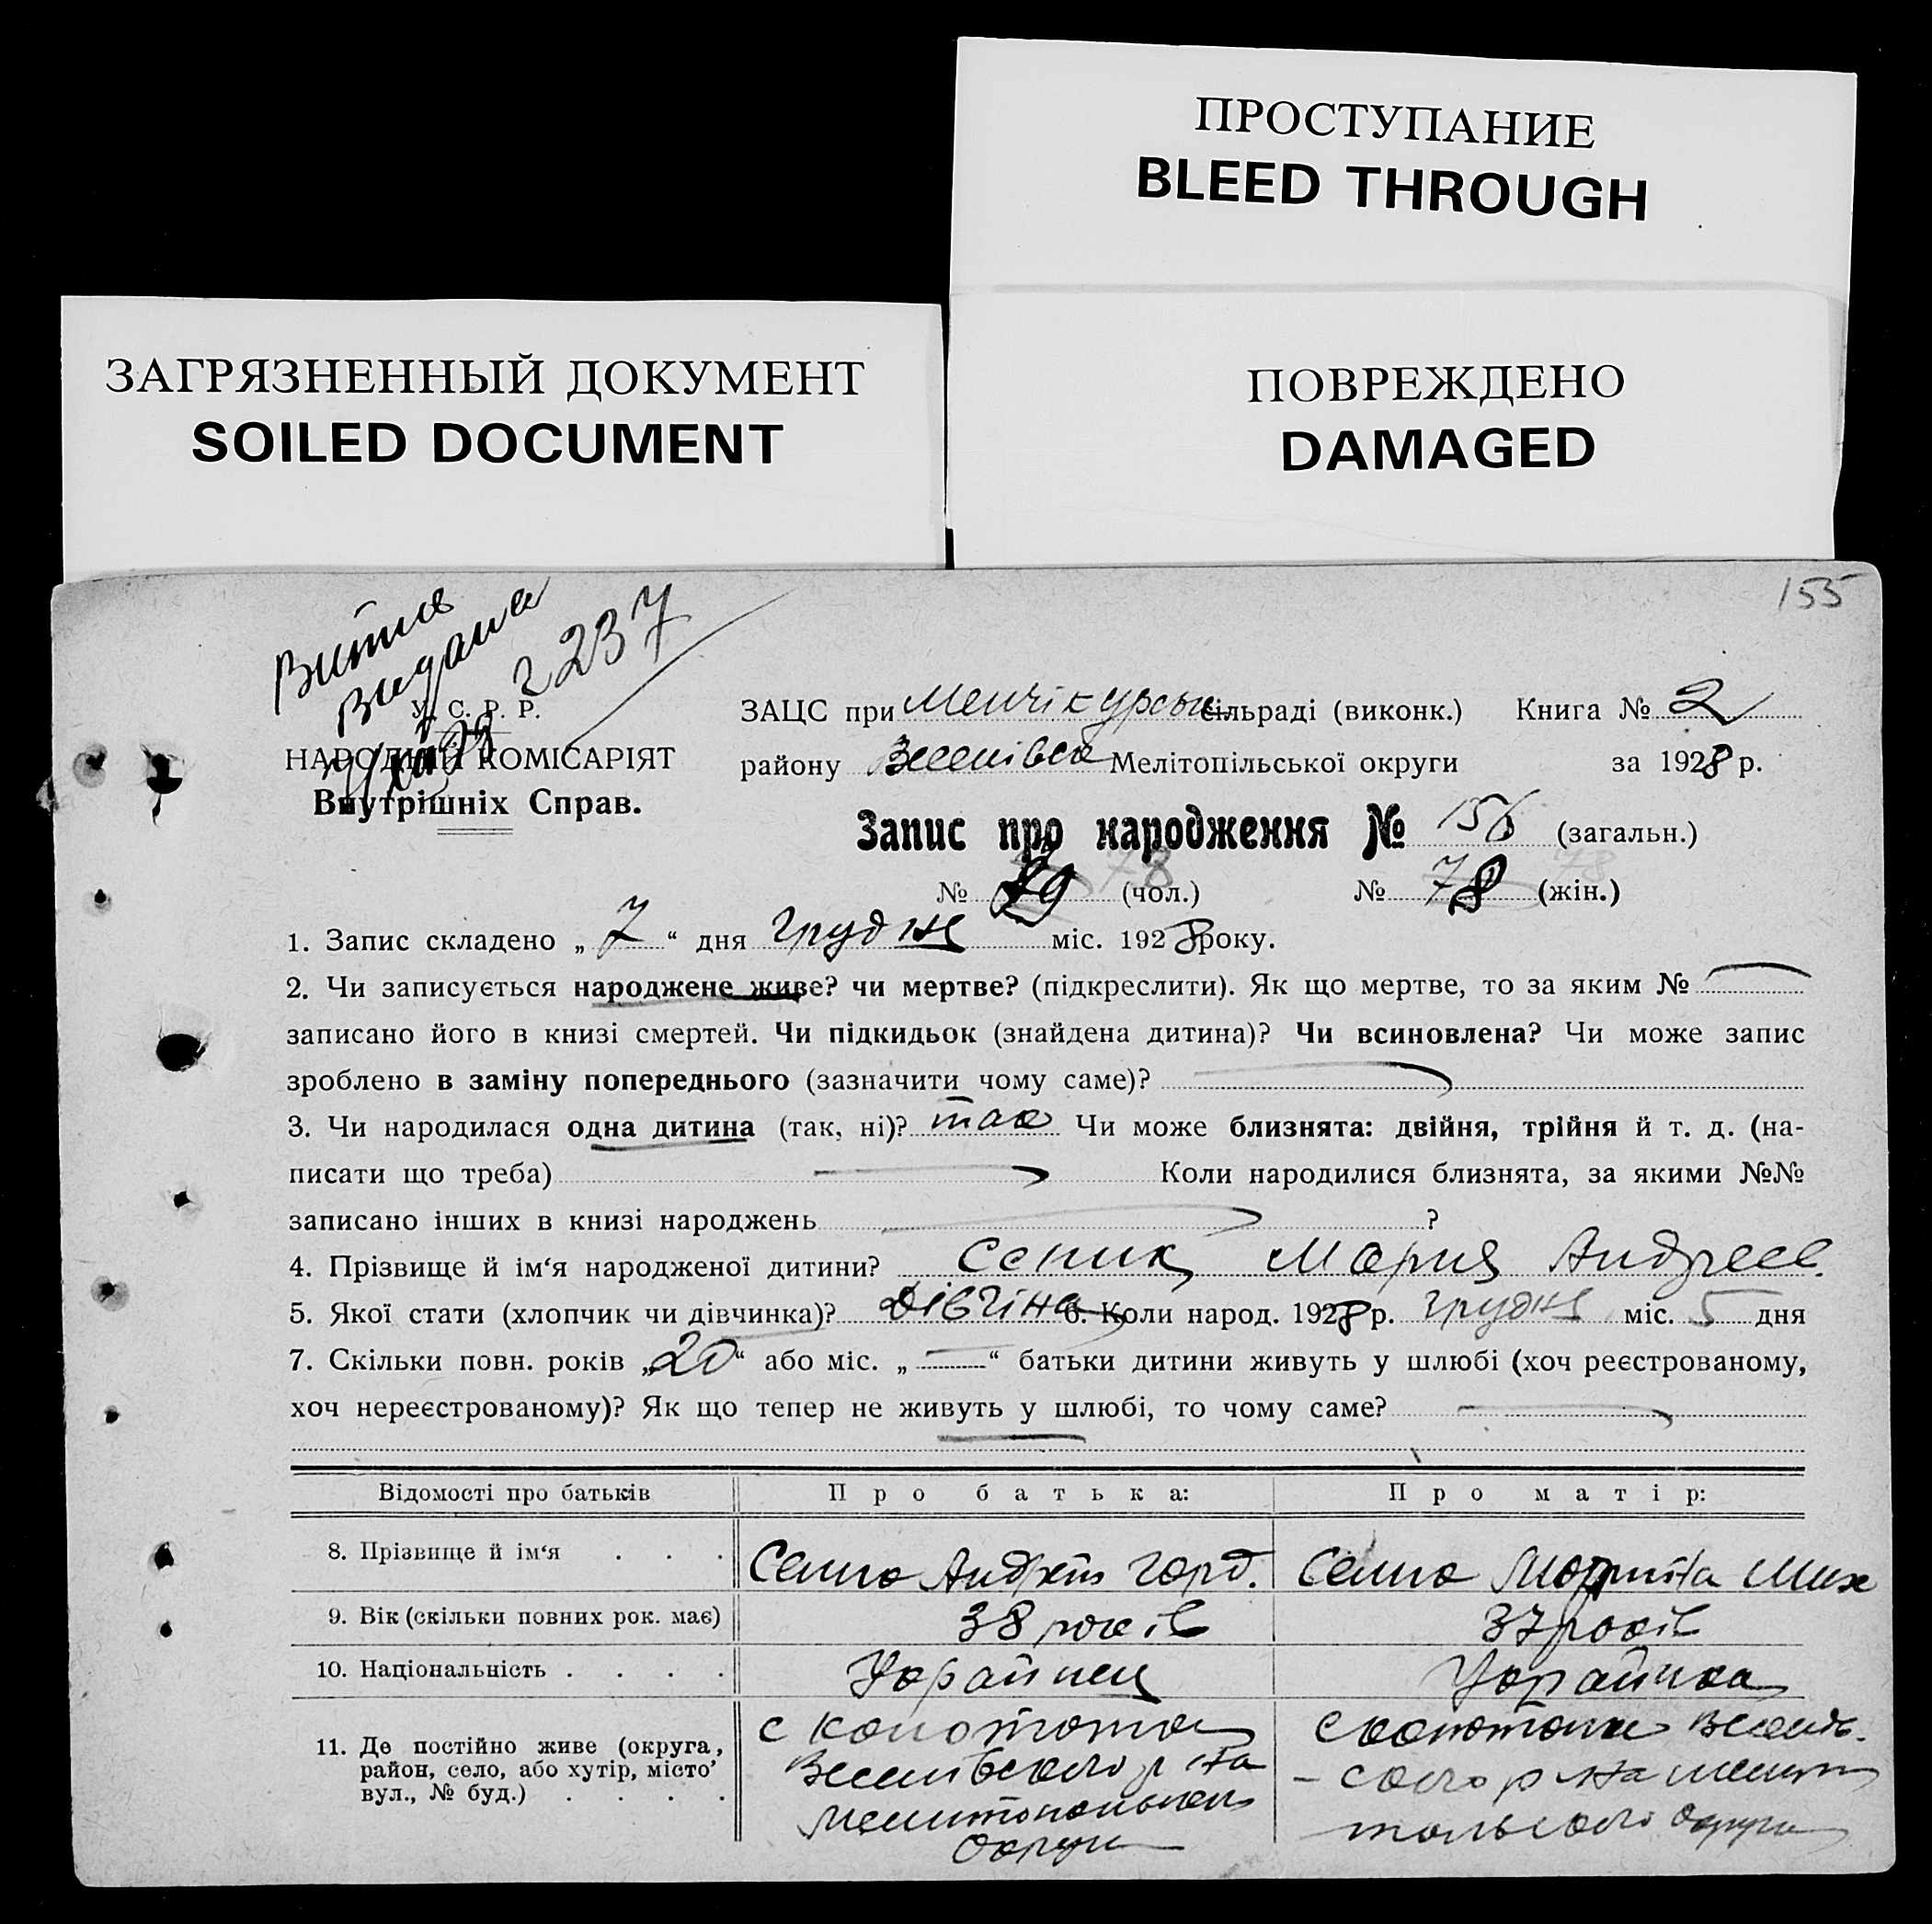 ПРОСТУПАНИЕ
BLEED THROUGH
ЗАГРЯЗНЕННЫЙ ДОКУМЕНТ
SOILED DOCUMENT
ПОВРЕЖДЕНО
DAMAGED
155
2237
У. С. Р. Р.
НАРОДНИЙ КОМІСАРІЯТ
Внутрішніх Справ.
ЗАЦС при Менчікурськ сільраді (виконк.) Книга № 2
району Мелітопільської округи за 1928 р.
Запис про народження № 156 (загальн.)
№ (чол.) № 78 (жін.)
1. Запис складено „ 7 “ дня грудня міс. 1928 року.
2. Чи записується народжене живе? чи мертве? (підкреслити). Як що мертве, то за яким №
записано його в книзі смертей. Чи підкидьок (знайдена дитина)? Чи всиновлена? Чи може запис
зроблено в заміну попереднього (зазначити чому саме)?
3. Чи народилася одна дитина (так, ні)? так Чи може близнята: двійня, трійня й т. д. (на-
писати що треба) Коли народилися близнята, за якими №№
записано інших в книзі народжень ?
4. Прізвище й ім‘я народженої дитини? Мария Андреев.
5. Якої стати (хлопчик чи дівчинка)? дівчіна 6. Коли народ. 1928 р. грудня міс. 5 дня
7. Скільки повн. років „ 20 “ або міс. „ — “ батьки дитини живуть у шлюбі (хоч реєстрованому,
хоч нереєстрованому)? Як що тепер не живуть у шлюбі, то чому саме?
Відомості про батьків Про батька: Про матір:
8. Прізвище й ім‘я . . . Андрій Горд.
9. Вік (скільки повних рок. має) 38 років 37 років
10. Національність . . . . Украйнец Украйнка
11. Де постійно живе (округа,
район, село, або хутір, місто,
вул., № буд.) . . . .
Округи округи